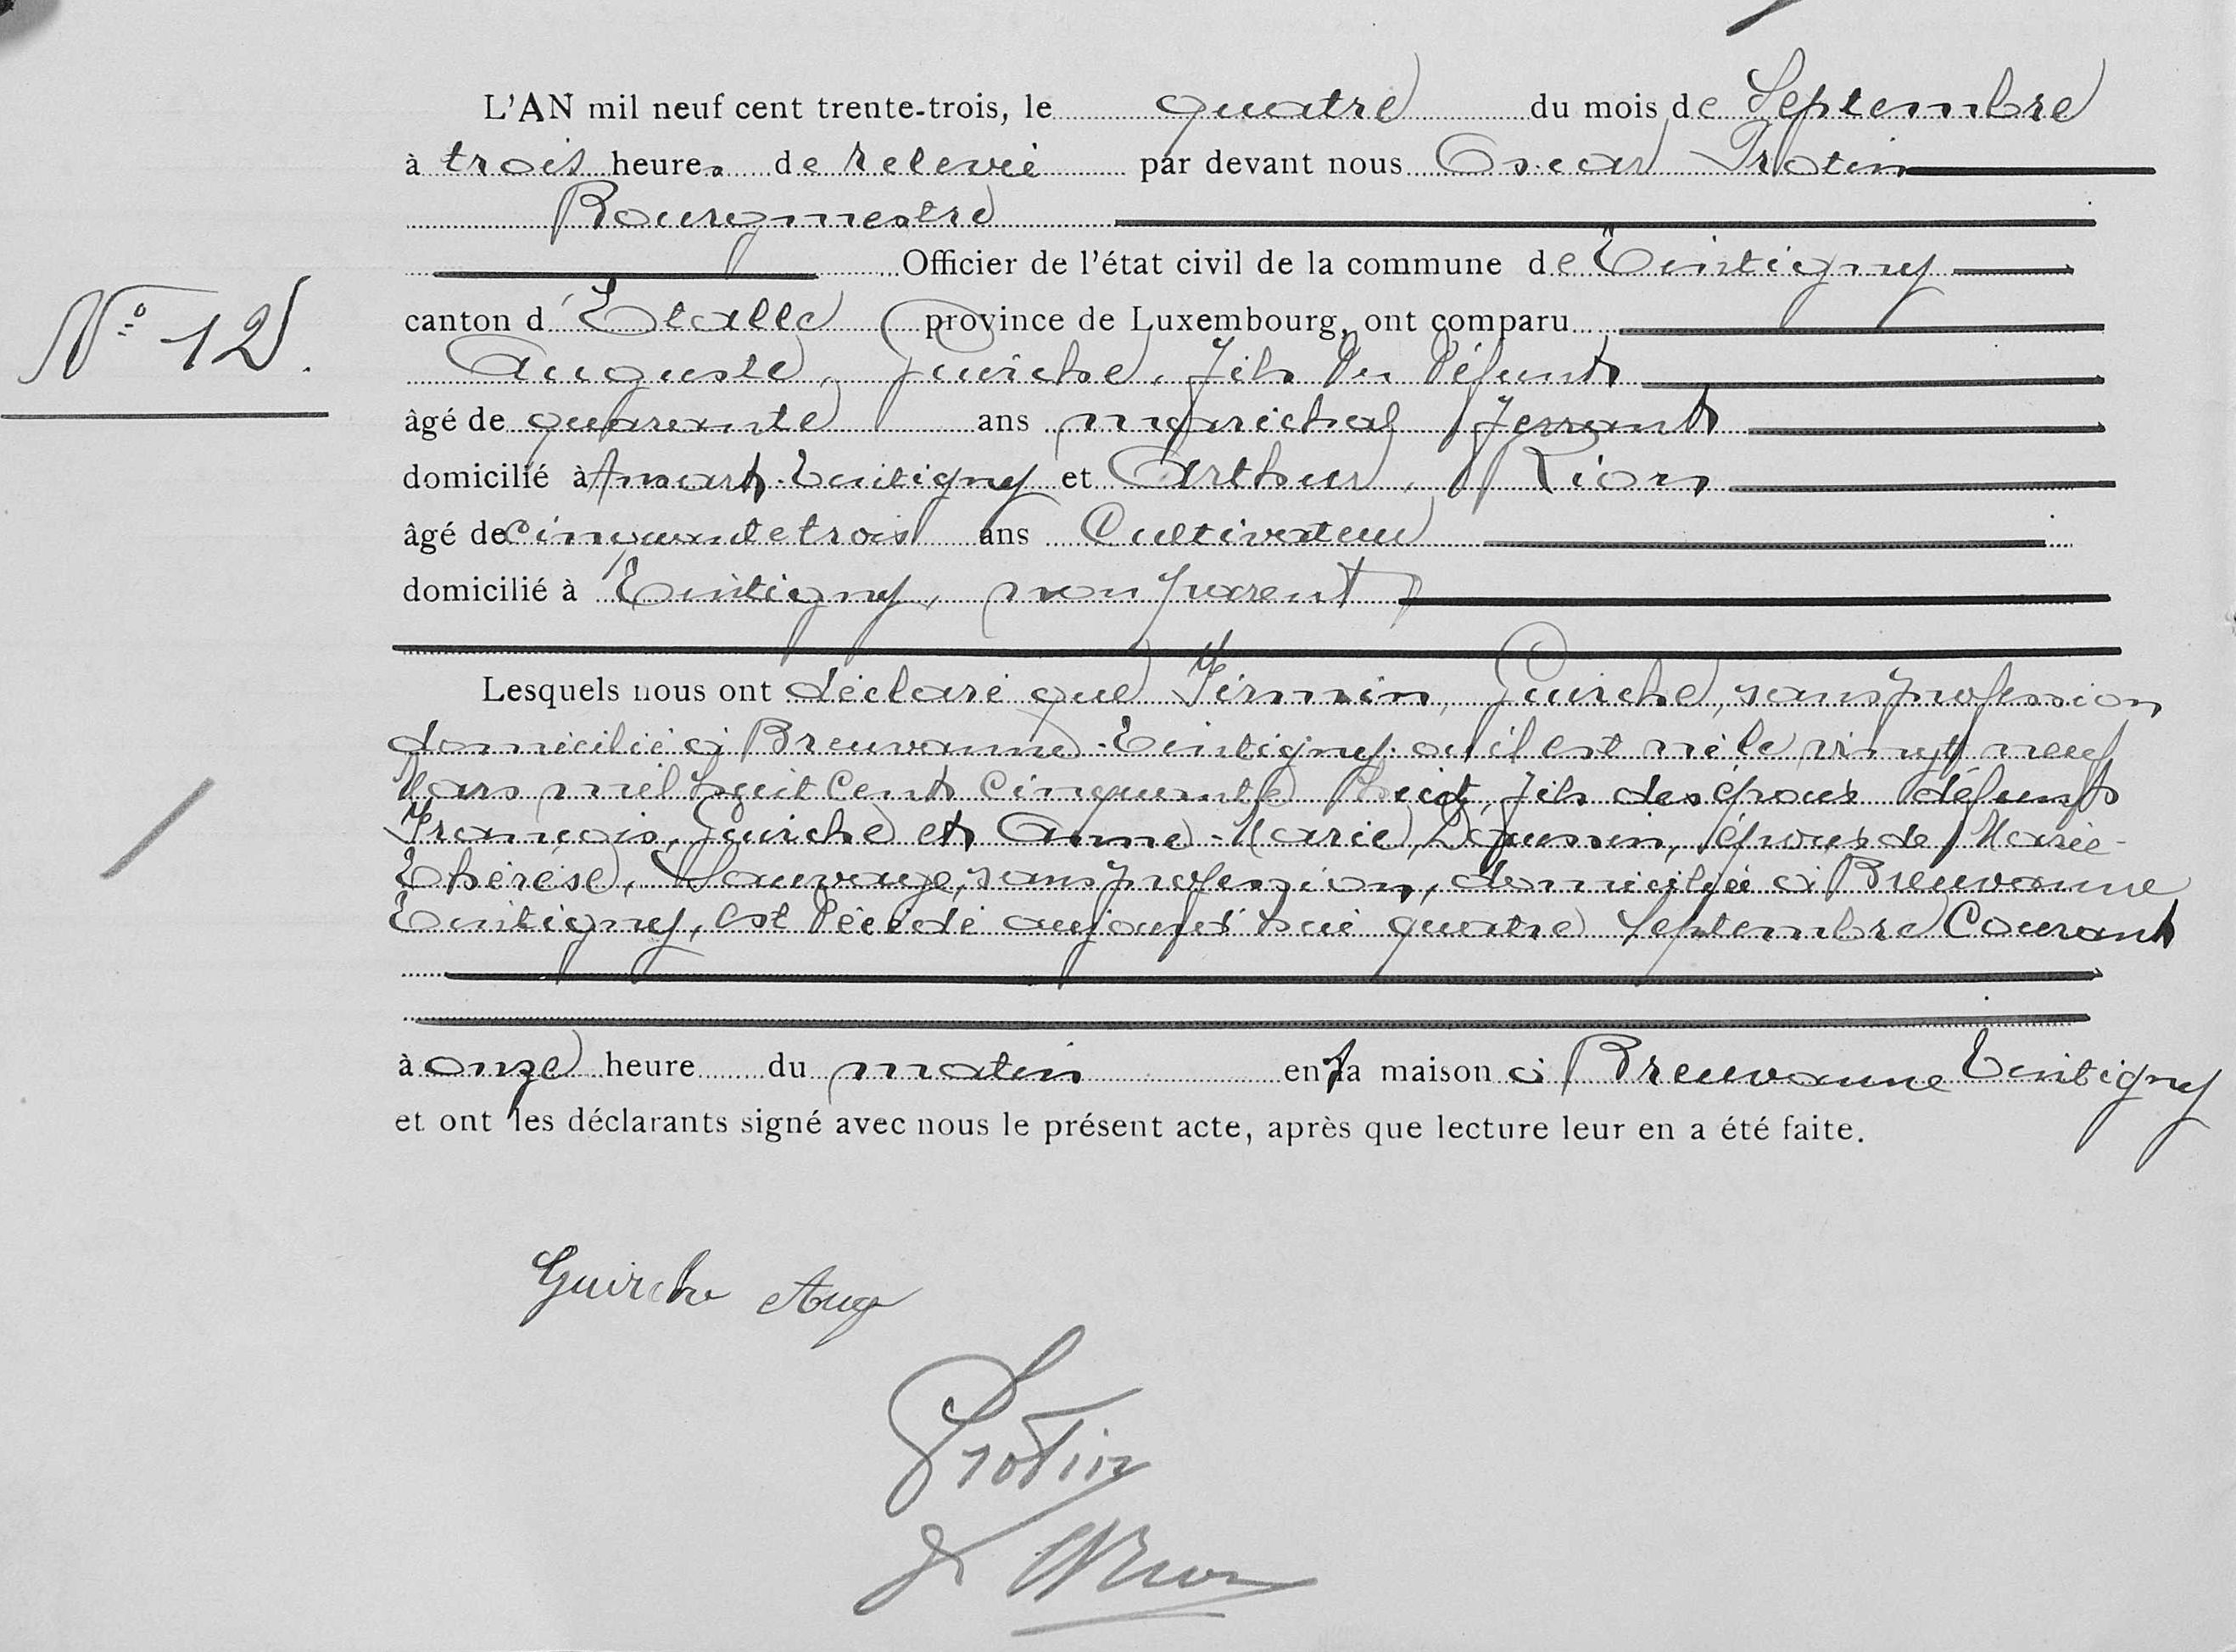 L'AN mil neuf cent trente-trois, le quatre du mois de Septembre
à trois heures de relevée par devant nous Oscar Protin
Bourgmestre
Officier de l'état civil de la commune de Tintigny
canton d'Etalle province de Luxembourg, ont comparu
N° 12.
Auguste, Guirche, fils du défunt
âgé de quarante ans maréchal ferrant
domicilié à Ansart-Tintigny et Arthur, Rion
âgé de cinquante trois ans Cultivateur
domicilié à Tintigny, non parent
Lesquels nous ont déclaré que Firmin, Guirche, sans profession
domicilié à Breuvanne-Tintigny où il est né le vingt neuf
Mars mil huit Cent Cinquante huit, fils des époux défunts
François, Guirche et Anne-Marie, époux de Marie-
Thérèse, Sauvage, sans profession, domiciliée à Breuvanne
Tintigny, est décédé aujourd'hui quatre Septembre Courant
à onze heure du matin en sa maison à Breuvanne Tintigny
et ont les déclarants signé avec nous le présent acte, après que lecture leur en a été faite.
Guirche Aug
Protin
Rion